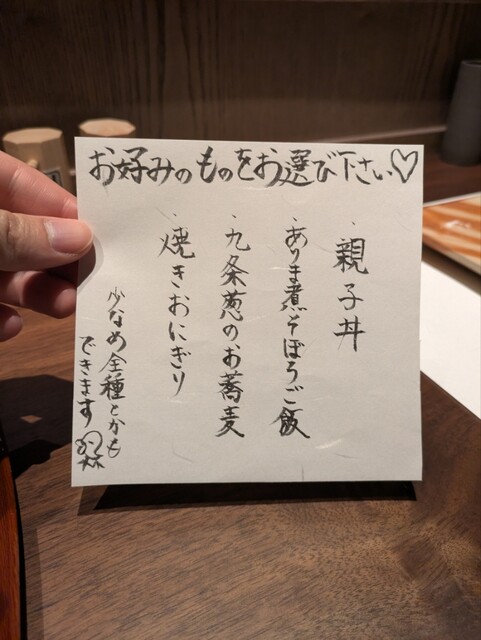 お好みのものをお選び下さい♡
・親子丼
・ありま煮そぼろご飯
・九条葱のお蕎麦
・焼きおにぎり
少なめ全種とかも
できます